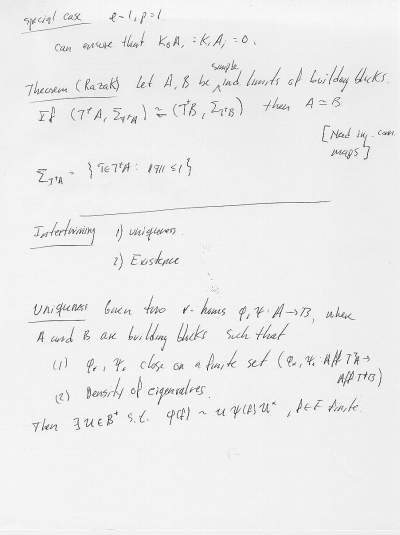 special case e=1, p=1
can ensure that K₀A, = K₁A, = 0.
Theorem (Razak) Let A, B be simple ind limits of building blocks.
If (T⁺A, Σ_T⁺A) ≃ (T⁺B, Σ_T⁺B) then A ≃ B
[Need inj. conn.
maps]
Σ_T⁺A = { τ∈T⁺A : ||τ|| ≤ 1 }
Intertwining 1) uniqueness
2) Existence
Uniqueness Given two *-homs φ, ψ : A → B, where
A and B are building blocks such that
(1) φ*, ψ* close on a finite set (φ*, ψ* : Aff T⁺A →
Aff T⁺B)
(2) Density of eigenvalues.
Then ∃ u∈B⁺ s.t. φ(f) ~ u ψ(f) u*, f∈F finite.